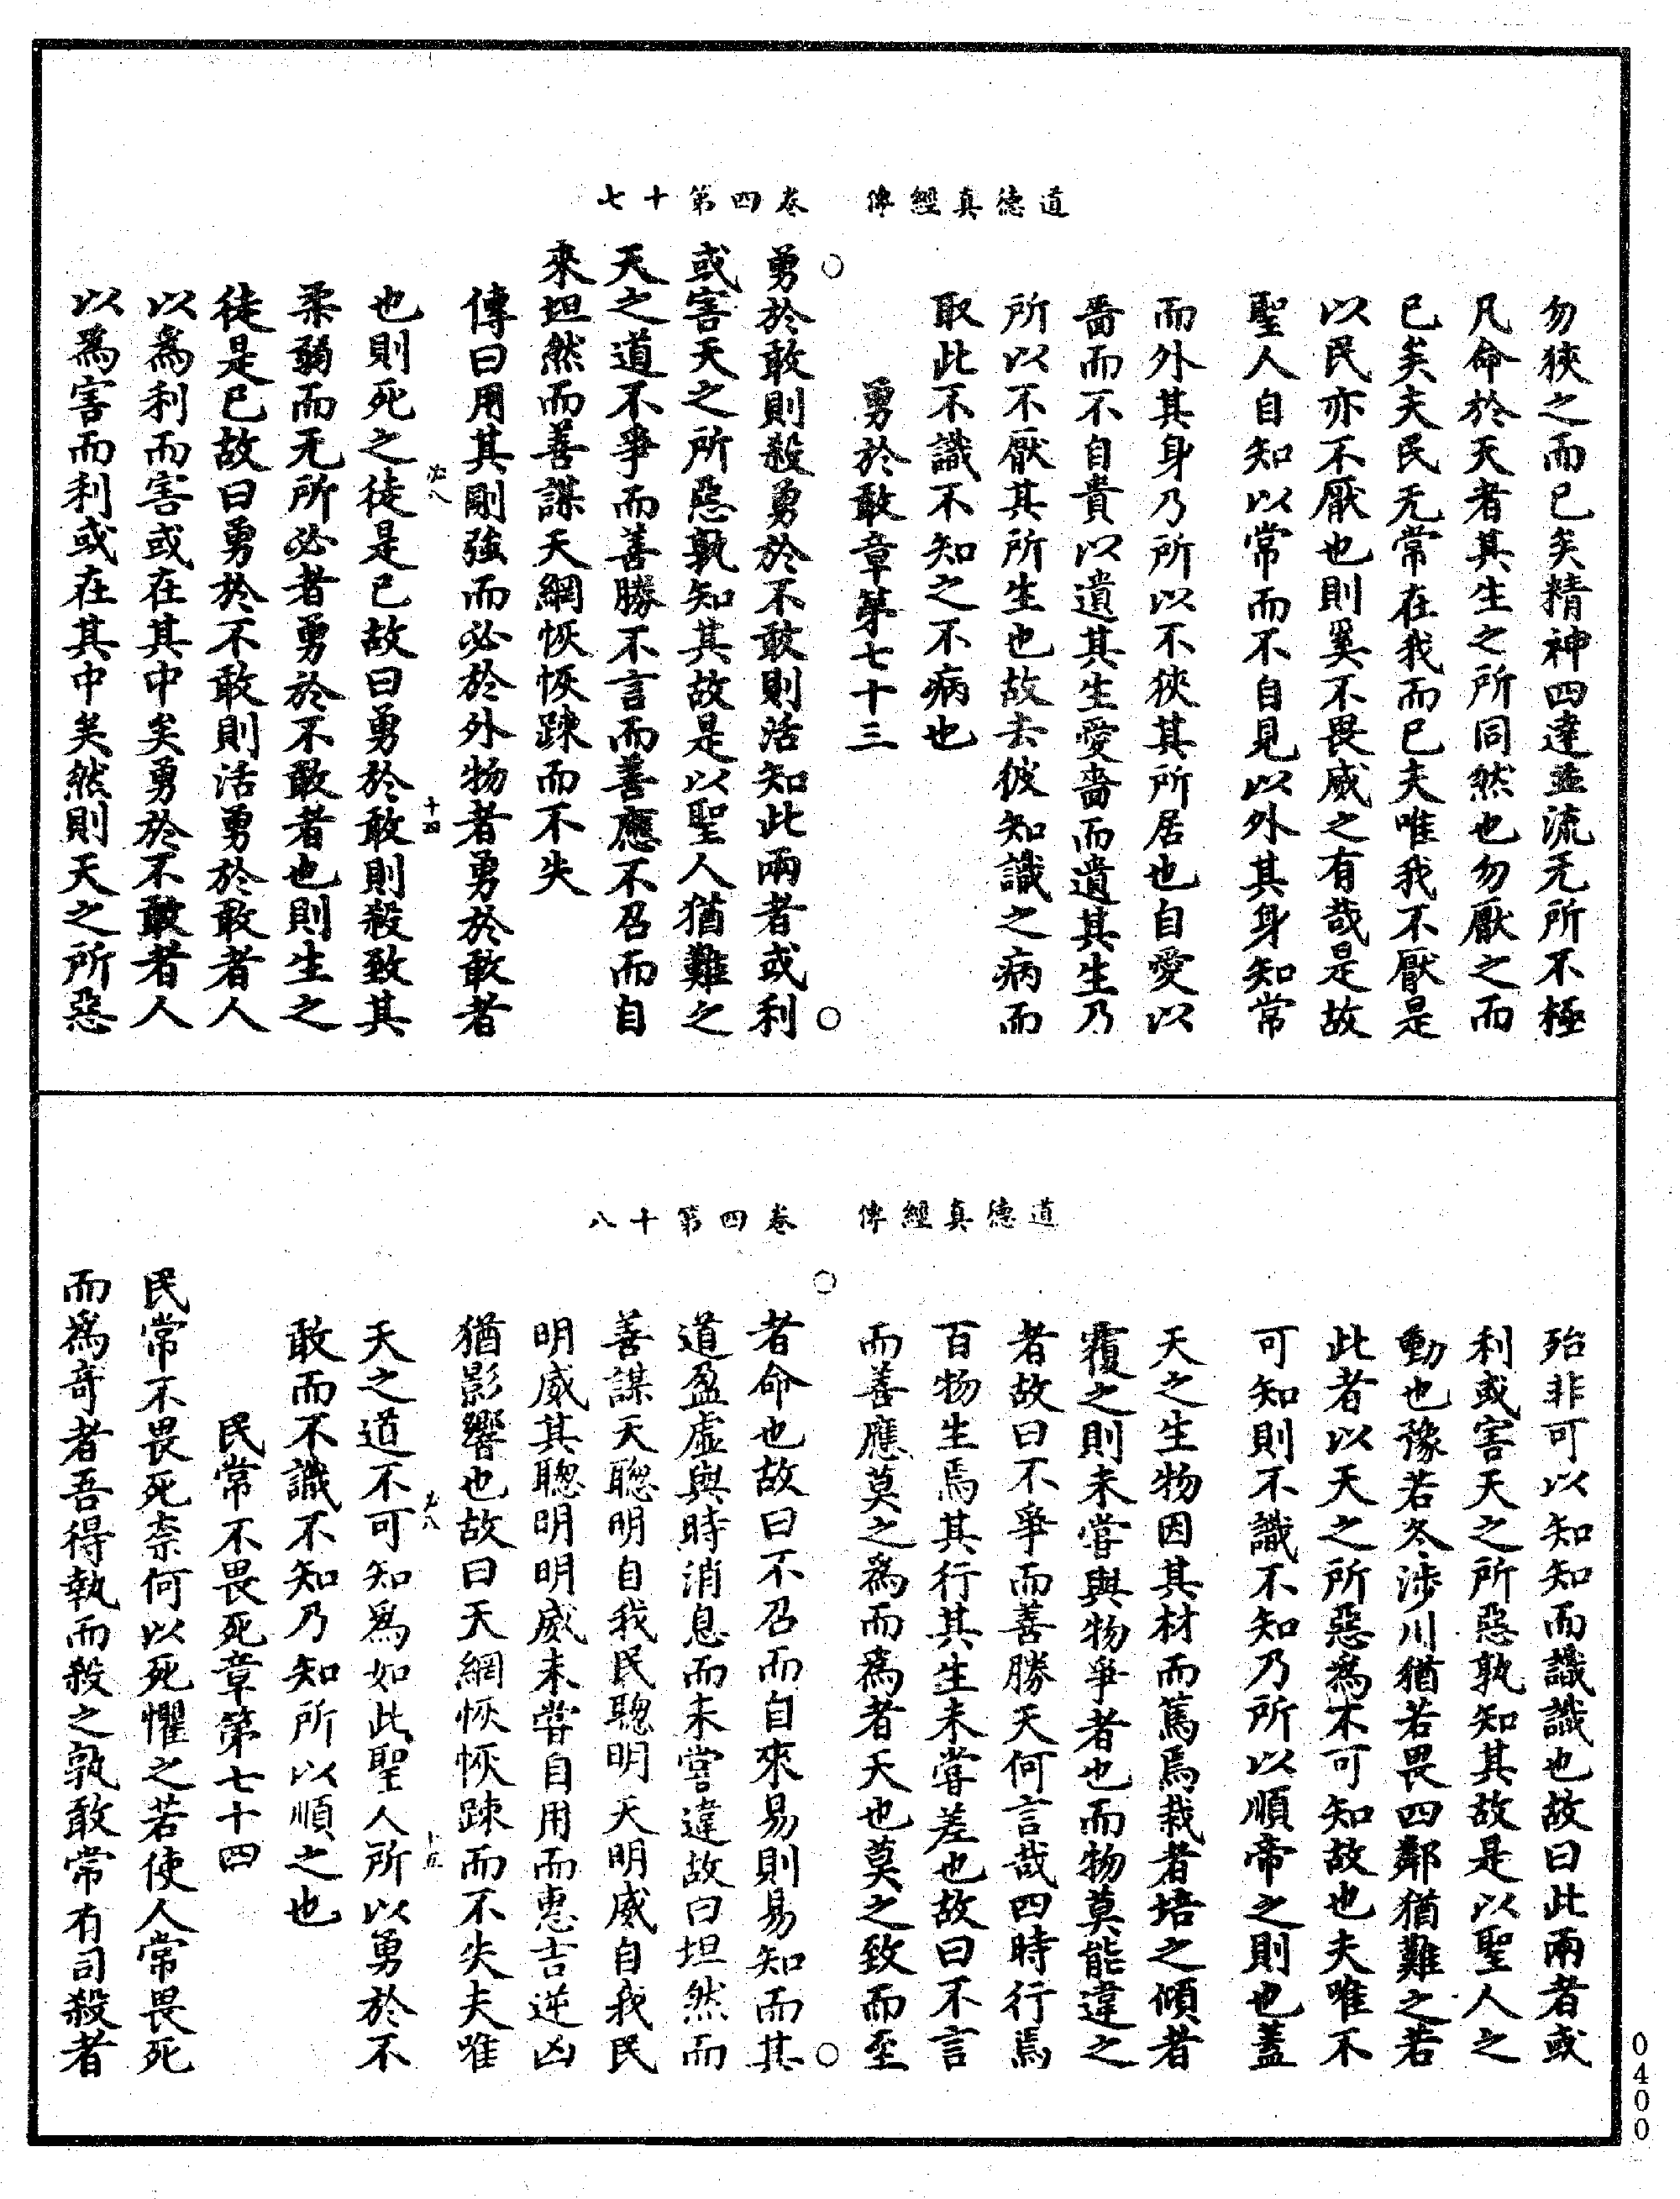 道德真經傳　卷四第十七
勿狹之而已矣精神四達並流无所不極
凡命於天者其生之所同然也勿厭之而
已矣夫民无常在我而已夫唯我不厭是
以民亦不厭也則奚不畏威之有哉是故
聖人自知以常而不自見以外其身知常
而外其身乃所以不狹其所居也自愛以
嗇而不自貴以遺其生愛嗇而遺其生乃
所以不厭其所生也故去彼知識之病而
取此不識不知之不病也
勇於敢章第七十三
○　○
勇於敢則殺勇於不敢則活知此兩者或利
或害天之所惡孰知其故是以聖人猶難之
天之道不爭而善勝不言而善應不召而自
來坦然而善謀天網恢恢踈而不失
傳曰用其剛強而必於外物者勇於敢者
必八　十四
也則死之徒是已故曰勇於敢則殺致其
柔弱而无所必者勇於不敢者也則生之
徒是已故曰勇於不敢則活勇於敢者人
以爲利而害或在其中矣勇於不敢者人
以爲害而利或在其中矣然則天之所惡
道德真經傳　卷四第十八
殆非可以知知而識識也故曰此兩者或
利或害天之所惡孰知其故是以聖人之
動也豫若冬涉川猶若畏四鄰猶難之若
此者以天之所惡爲不可知故也夫唯不
可知則不識不知乃所以順帝之則也蓋
天之生物因其材而篤焉栽者培之傾者
覆之則未嘗與物爭者也而物莫能違之
者故曰不爭而善勝天何言哉四時行焉
百物生焉其行其生未嘗差也故曰不言
而善應莫之爲而爲者天也莫之致而至
○　○
者命也故曰不召而自來易則易知而其
道盈虛與時消息而未嘗違故曰坦然而
善謀天聰明自我民聰明天明威自我民
明威其聰明明威未嘗自用而惠吉逆凶
猶影響也故曰天網恢恢踈而不失夫唯
必八　十五
天之道不可知爲如此聖人所以勇於不
敢而不識不知乃知所以順之也
民常不畏死章第七十四
民常不畏死柰何以死懼之若使人常畏死
而爲奇者吾得執而殺之孰敢常有司殺者
0400